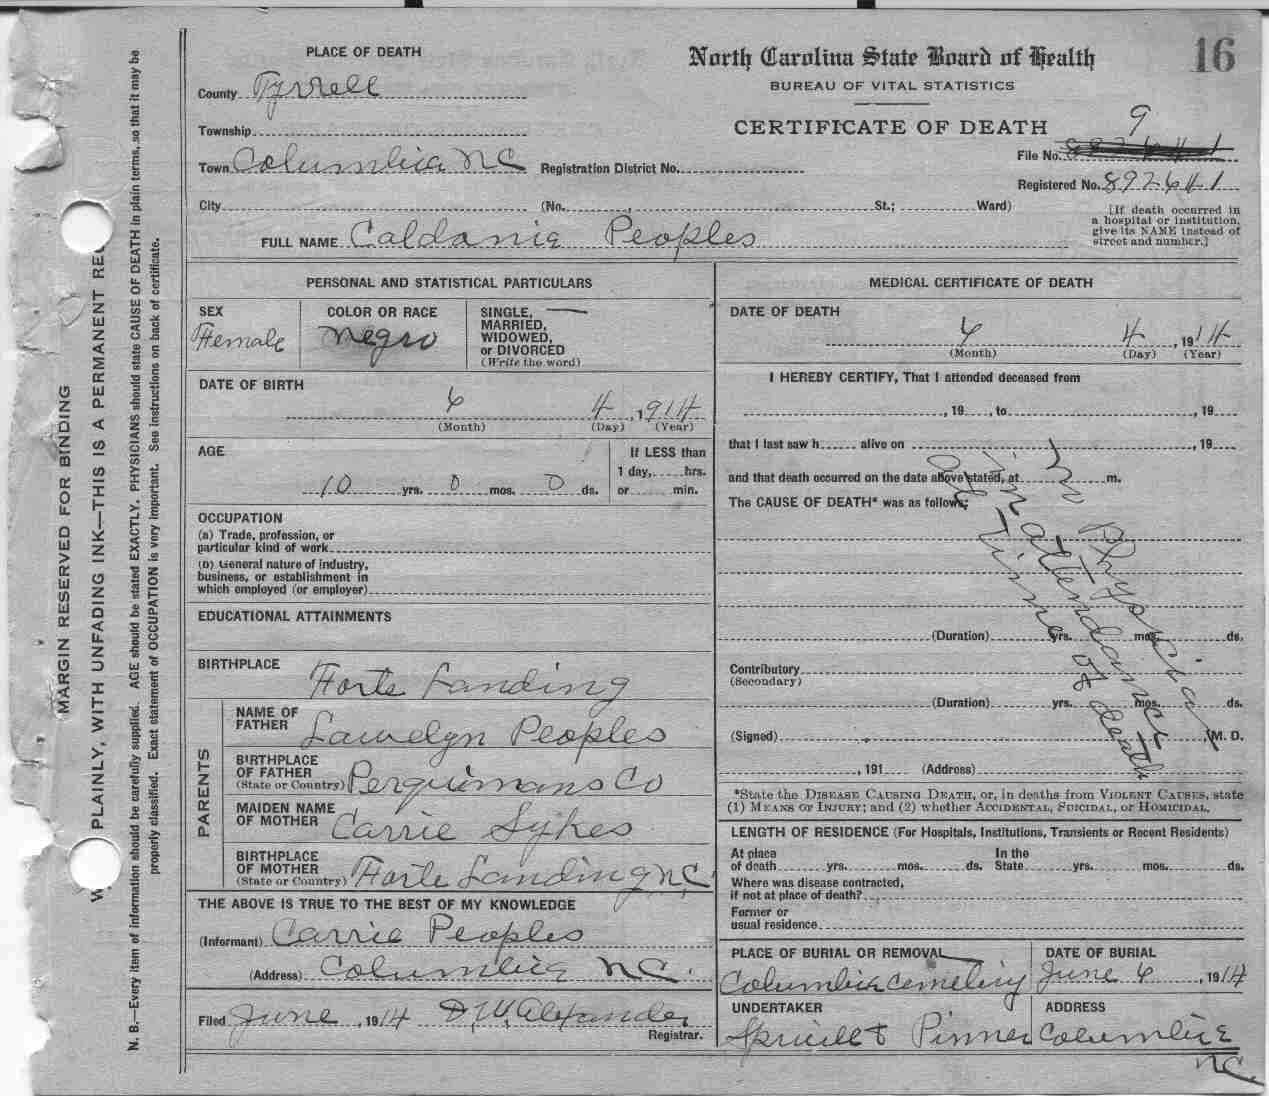 16
PLACE OF DEATH
North Carolina State Board of Health
BUREAU OF VITAL STATISTICS
CERTIFICATE OF DEATH
County Tyrrell
Township
Town Columbia NC Registration District No.
City (No. , St.; Ward)
9
File No.
Registered No. 892641
[If death occurred in
a hospital or institution,
give its NAME instead of
street and number.]
FULL NAME Caldonie Peoples
PERSONAL AND STATISTICAL PARTICULARS
SEX
Female
COLOR OR RACE
Negro
SINGLE,
MARRIED,
WIDOWED,
or DIVORCED
(Write the word)
DATE OF BIRTH
6 4 , 1914
(Month) (Day) (Year)
AGE
10 yrs. 0 mos. 0 ds.
If LESS than
1 day, hrs.
or min.
OCCUPATION
(a) Trade, profession, or
particular kind of work
(b) General nature of industry,
business, or establishment in
which employed (or employer)
EDUCATIONAL ATTAINMENTS
BIRTHPLACE Forte Landing
PARENTS
NAME OF
FATHER Lawelyn Peoples
BIRTHPLACE
OF FATHER
(State or Country) Perquimans Co
MAIDEN NAME
OF MOTHER Carrie Sykes
BIRTHPLACE
OF MOTHER
(State or Country) Forte Landing NC
THE ABOVE IS TRUE TO THE BEST OF MY KNOWLEDGE
(Informant) Carrie Peoples
(Address) Columbia NC.
Filed June , 1914 D. W. Alexander
Registrar.
MEDICAL CERTIFICATE OF DEATH
DATE OF DEATH
6 4 , 1914
(Month) (Day) (Year)
I HEREBY CERTIFY, That I attended deceased from
, 19 , to , 19
that I last saw h alive on , 19
and that death occurred on the date above stated, at m.
The CAUSE OF DEATH* was as follows:
No Physician
in attendance
at time of death
(Duration) yrs. mos. ds.
Contributory
(Secondary)
(Duration) yrs. mos. ds.
(Signed) , M. D.
, 191 (Address)
*State the DISEASE CAUSING DEATH, or, in deaths from VIOLENT CAUSES, state
(1) MEANS OF INJURY; and (2) whether ACCIDENTAL, SUICIDAL, or HOMICIDAL.
LENGTH OF RESIDENCE (For Hospitals, Institutions, Transients or Recent Residents)
At place
of death yrs. mos. ds.
In the
State yrs. mos. ds.
Where was disease contracted,
if not at place of death?
Former or
usual residence
PLACE OF BURIAL OR REMOVAL
Columbia Cemetery
DATE OF BURIAL
June 6 , 1914
UNDERTAKER
Spruill & Pinner
ADDRESS
Columbia
NC.
MARGIN RESERVED FOR BINDING
PLAINLY, WITH UNFADING INK—THIS IS A PERMANENT
N. B.—Every item of information should be carefully supplied. AGE should be stated EXACTLY. PHYSICIANS should state CAUSE OF DEATH in plain terms, so that it may be
properly classified. Exact statement of OCCUPATION is very important. See instructions on back of certificate.